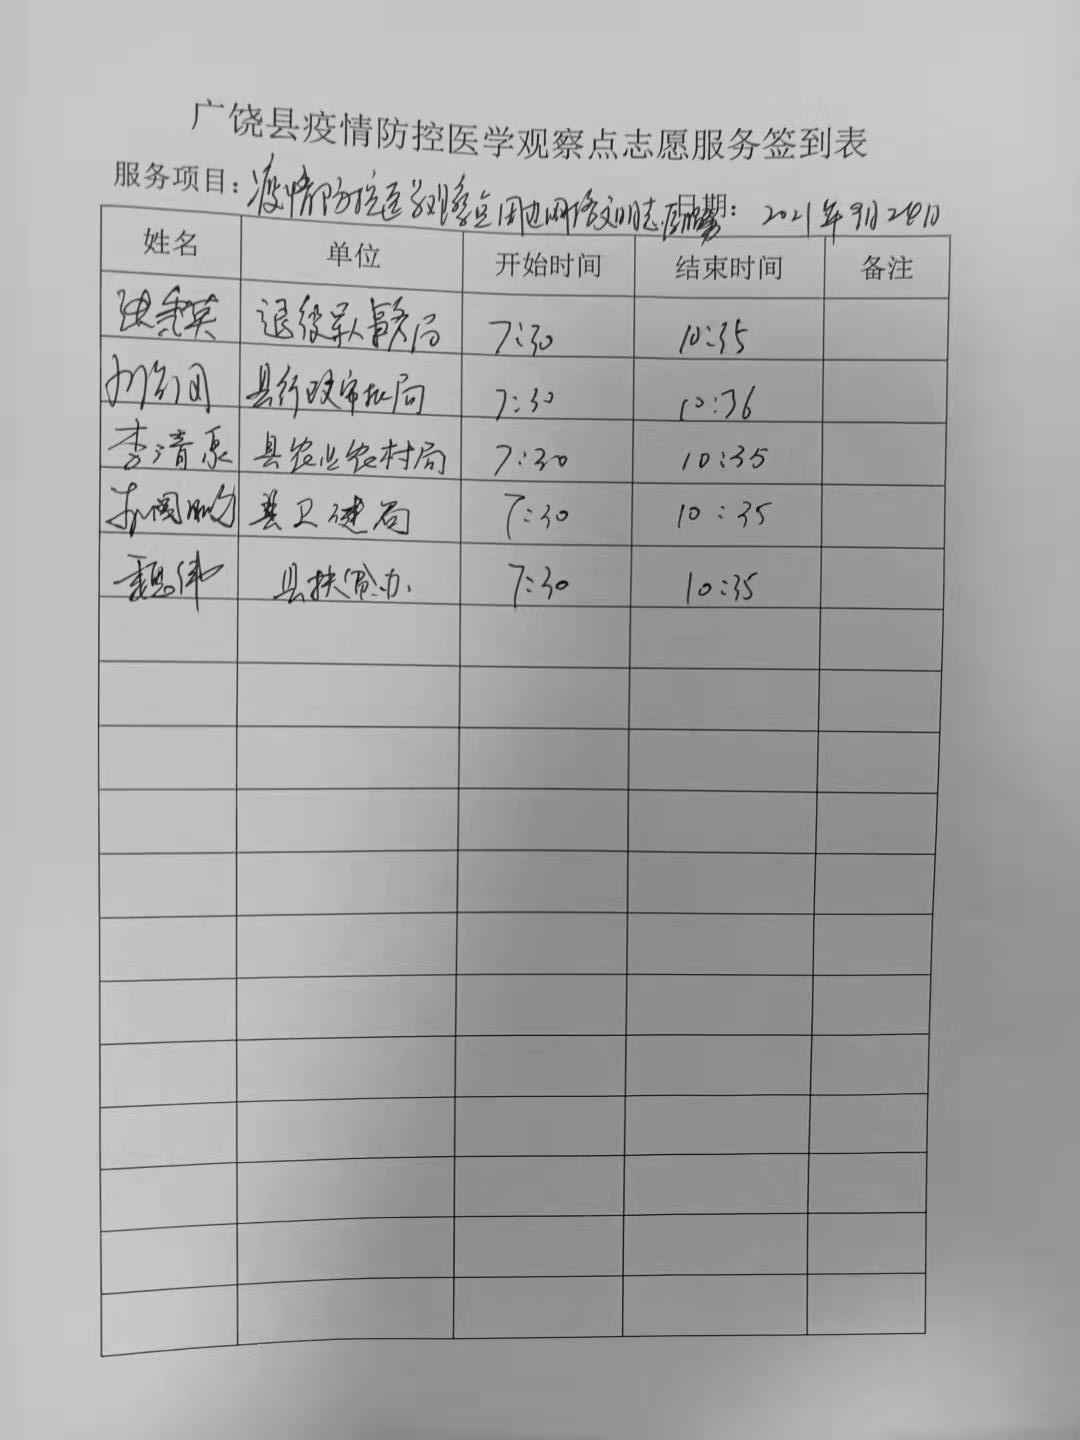 广饶县疫情防控医学观察点志愿服务签到表
服务项目：疫情防控医学观察点周边网络文明志愿服务 日期： 2021年9月24日
姓名 单位 开始时间 结束时间 备注
退役军人事务局 7:30 10:35
县行政审批局 7:30 10:36
李清泉 县农业农村局 7:30 10:35
县卫健局 7:30 10:35
魏伟 县扶贫办 7:30 10:35